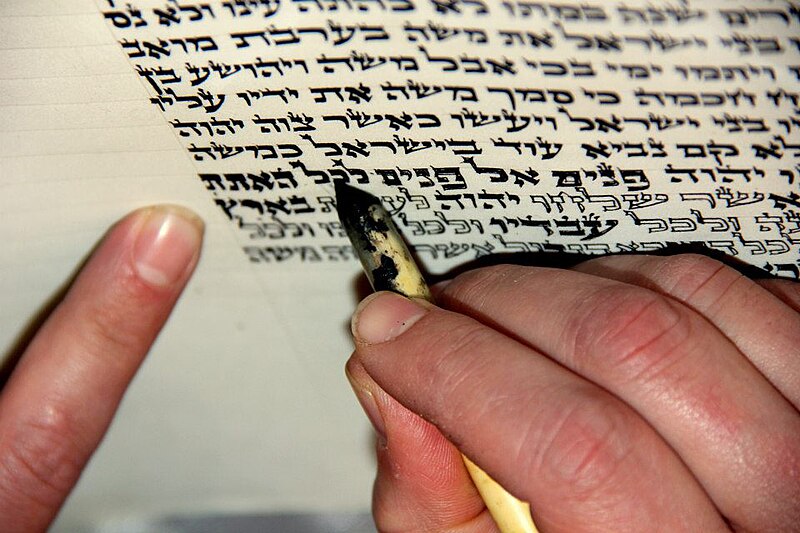 שנה במתו לא כהתה עינו ולא נס
בני ישראל את משה בערבת מואב
ויתמו ימי בכי אבל משה ויהושע בן
חכמה כי סמך משה את ידיו עליו
בני ישראל ויעשו כאשר צוה יהוה
ולא קם נביא עוד בישראל כמשה
יהוה פנים אל פנים לכל האתת
אשר שלחו יהוה בארץ
ולכל עבדיו ולכל ולכל
אשר משה